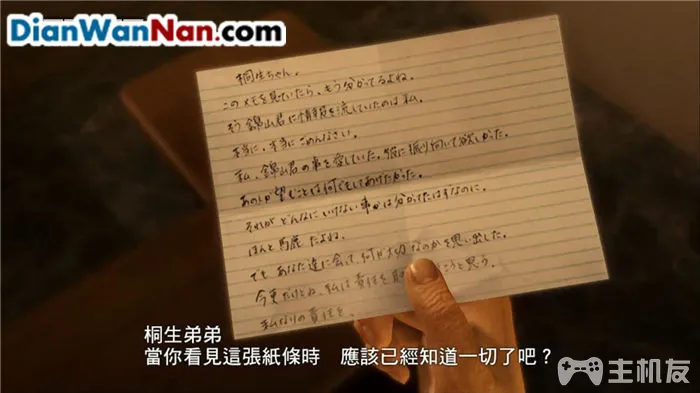 DianWanNan.com
桐生ちゃん。
このメモを見ていたら、もう分かってるよね。
そう 錦山君に情報を流していたのは 私。
本当に、本当に ごめんなさい。
私、錦山君の事を愛していた。彼に振り向いて欲しかった。
あの人が望むことは何でもしてあげたかった。
それが どんなに いけない事かは分かってたはずなのに。
ほんと 馬鹿 だよね。
でも あなた達に会って、何が大切なのかを思い出した。
今更だけどね、私は責任を取ろうと思う。
私なりの責任を。
桐生弟弟
當你看見這張紙條時 應該已經知道一切了吧？
主机友